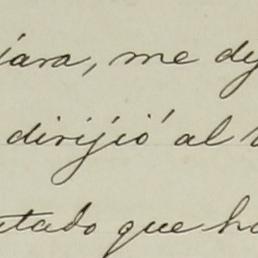 iara, me dy
dirijió al
tado que ha